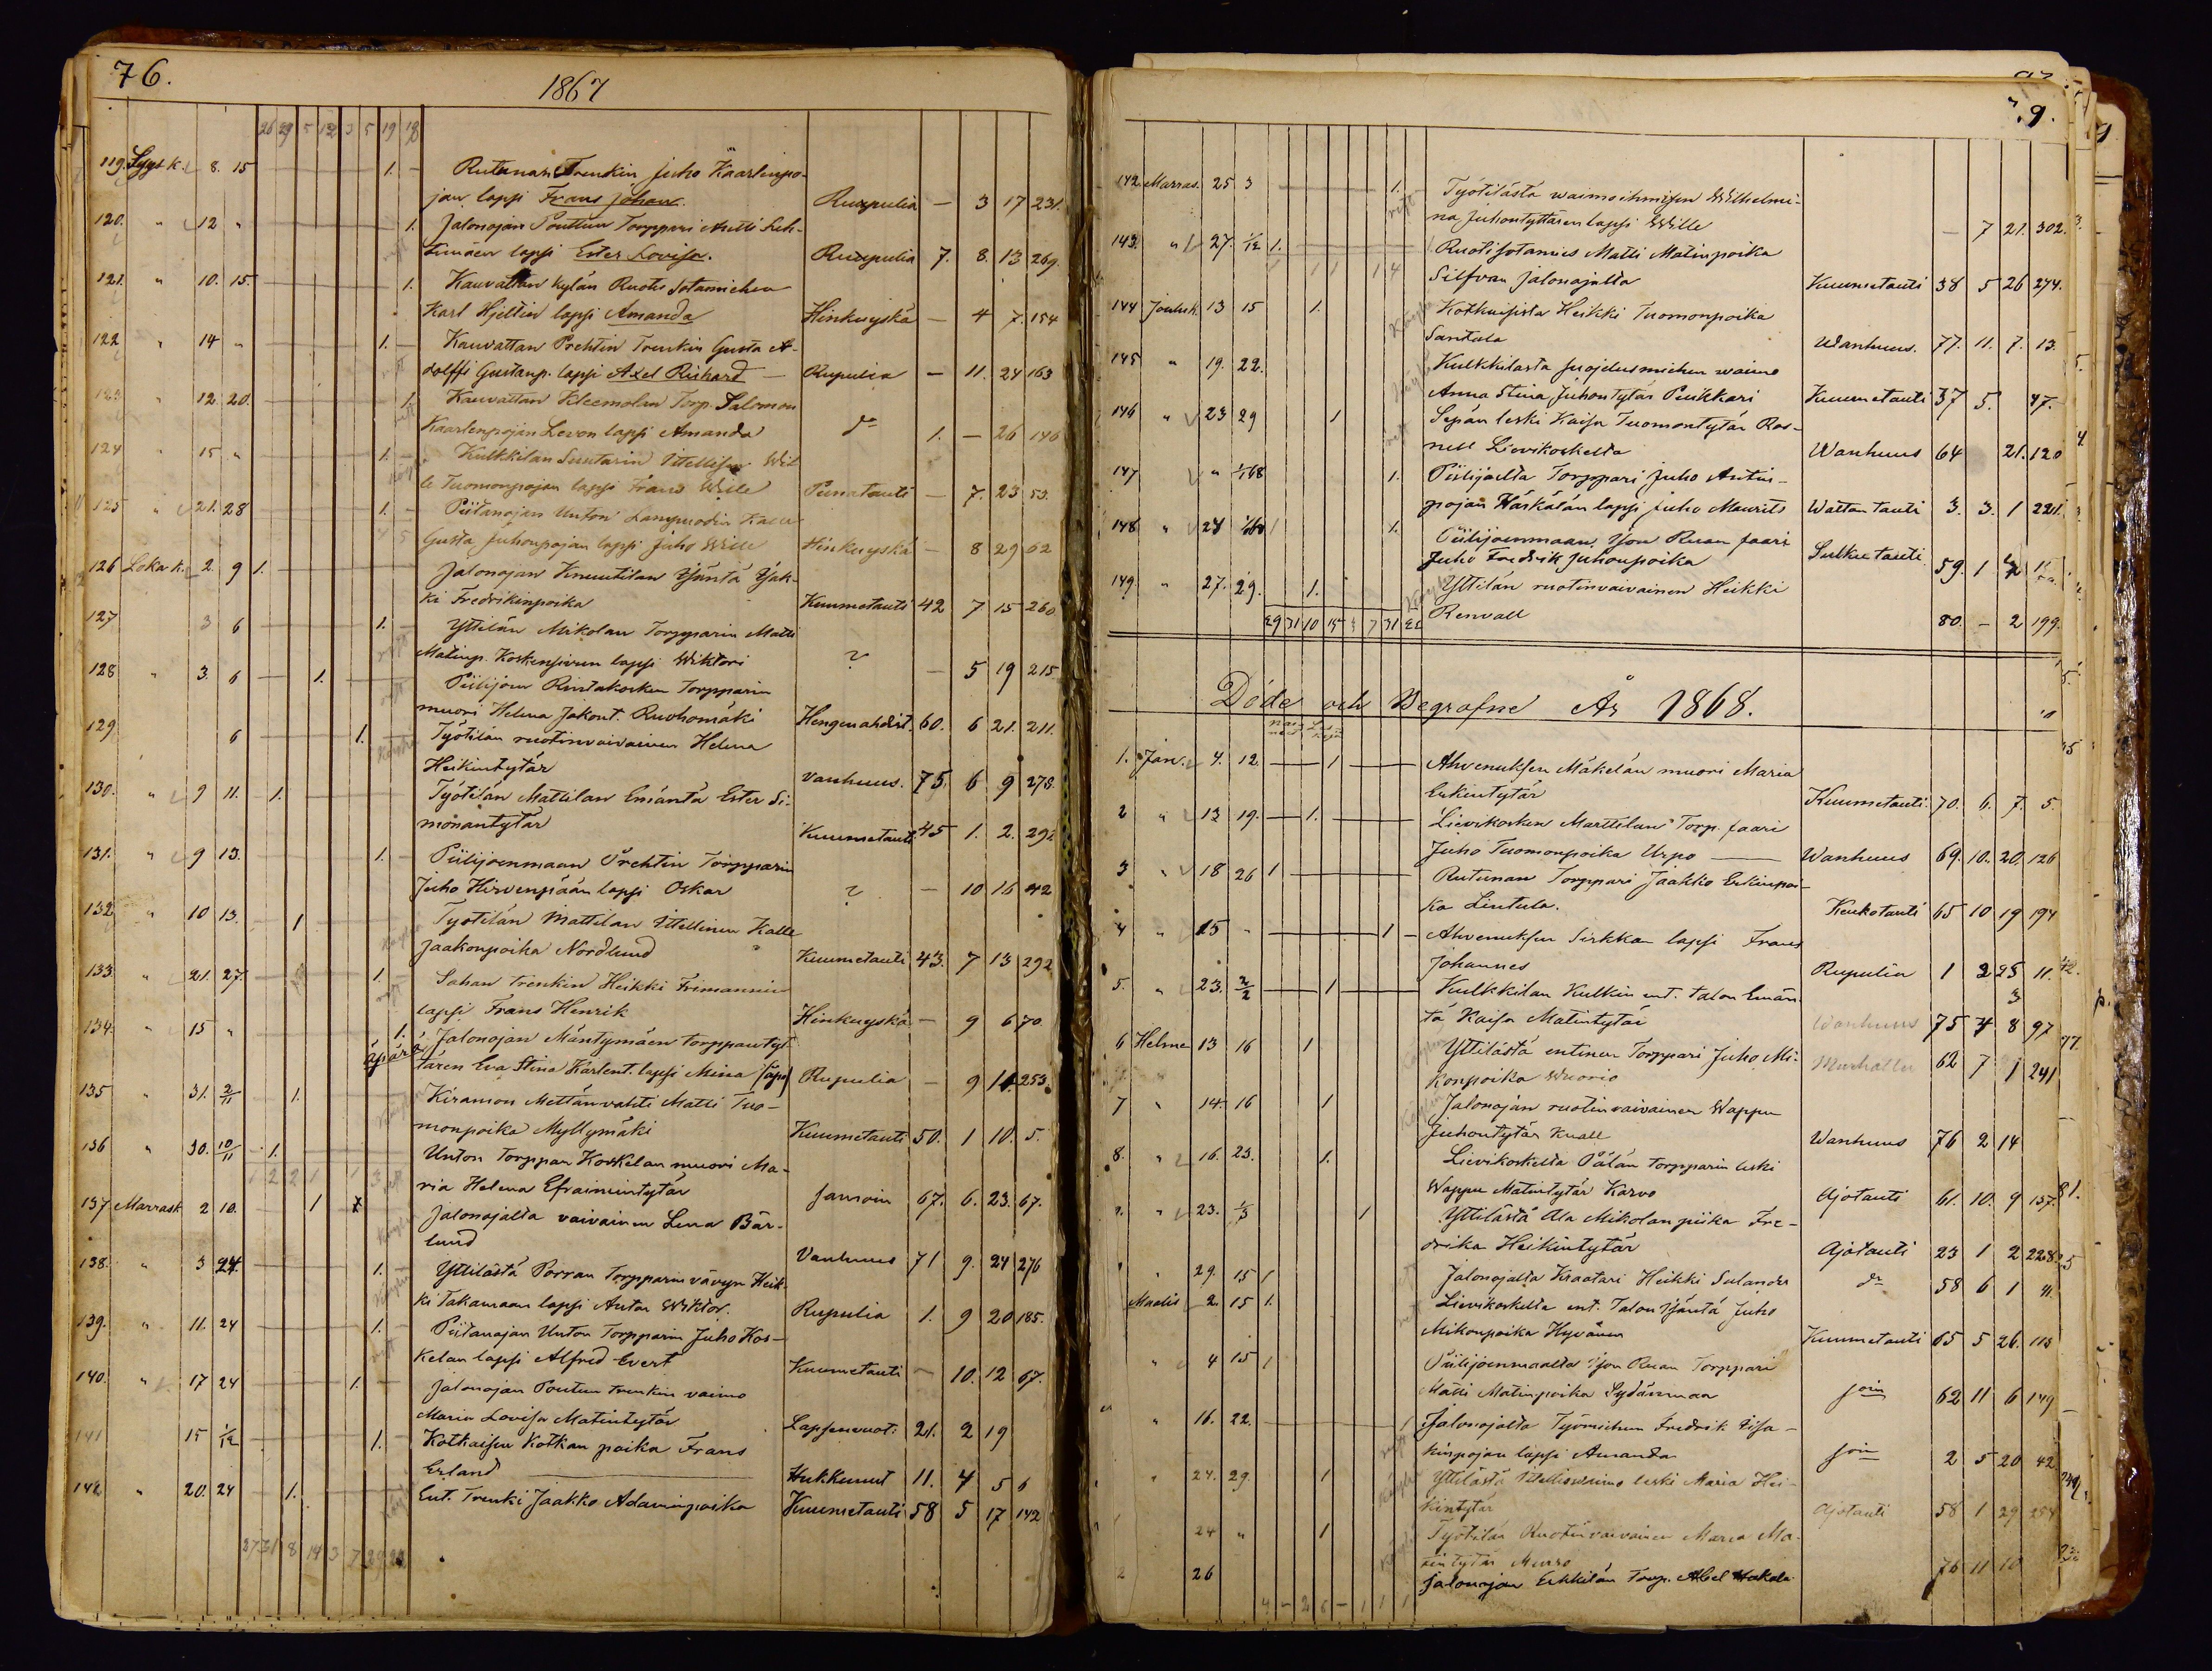 76.
1867
26 29 5 12 3 5 19 18
119. Syysk. 8. 15 1. Rutunan Trenkin Juho Kaarlenpo-
jan lapsi Frans Johan. Rupulia — 3 17 231.
120. " 12 " 1. Jalonojan Pouttun Torppari Antti Leh-
timäen lapsi Ester Lovisa. Rupulia 7. 8. 13 269.
121. " 10. 15. 1. Kauvattan kylän Ruotu Sotamiehen
Karl Hjeltin lapsi Amanda Hinkuyskä — 4 7. 154
122 " 14 " 1. Kauvattan Prehtin Trenkin Gusta A-
dolffi Gustanp. lapsi Axel Richard — Rupulia — 11. 24 163
123 " 12 20. 1. Kauvattan Kleemolan Torp. Salomon
Kaarlenpojan Levon lapsi Amanda do 1. — 26 146
124 " 15 " 1. Kulkkilan Suutarin Itellisen Wil
le Tuomonpojan lapsi Frans Wille Punatauti — 7. 23 53.
125 " 21. 28 1. Piitanojan Unton Lampuodin Kalle
Gusta Juhonpojan lapsi Juho Wille Hinkuyskä — 8 29 62
126 Loka k. 2. 9 1. Jalonojan Knuutilan Isäntä Jak-
ki Fredrikinpoika Kuumetauti 42 7 15 260
127 3 6 1. Yttilän Mikolan Torpparin Matti
Matinp. Koskensivun lapsi Wiktori ? — 5 19 215
128 " 3. 6 1. Piilijoen Rintakosken Torpparin
muori Helena Jakont. Ruohomäki Hengenahdist. 60. 6 21. 211.
129 6 1. Työtilän ruotinvaivainen Helena
Heikintytär vanhuus. 75. 6 9 278.
130. " 9 11. 1. Työtilän Mattilan Emäntä Ester Si-
monantytär Kuumetauti 45 1. 2. 292
131. " 9 13. 1. Piilijoenmaan Prehtin Torpparin
Juho Hirvenpään lapsi Oskar ? — 10 16 42
132 " 10 13. 1 Työtilän Mattilan Itellinen Kalle
Jaakonpoika Nordlund Kuumetauti 43. 7 13 292
133 " 21. 27. 1. Sahan trenkin Heikki Frimannin
lapsi Frans Henrik Hinkuyskä — 9 6 70
134. " 15 " 1. äpärä Jalonojan Mäntymäen torppan tyt-
tären Eva Stina Karlent. lapsi Mina (äpä) Rupulia — 9 11. 253.
135 " 31. 2/11 1. Kiramon Mettänvahti Matti Tuo-
monpoika Myllymäki Kuumetauti 50. 1 10. 5.
136 " 30. 10/11 1. Unton Torppan Koskelan muori Ma-
ria Helena Efraimintytär Samoin 67. 6. 23. 67.
137 Marrask 2 10. 1 Jalonojalta vaivainen Lena Bär-
lund Vanhuus 71 9. 24 276
138. " 3 24. 1. Yttilästä Porran Torpparin vävyn Heik-
ki Takamaan lapsi Anton Wiktor. Rupulia 1. 9 20 185.
139. " 11. 24 1. Piitanojan Unton Torpparin Juho Kos-
kelan lapsi Alfred Evert Kuumetauti — 10. 12 67.
140. " 17 24 1. Jalonojan Poutun trenkin vaimo
Maria Lovisa Matintytär Lapsenvuot: 21. 2 19
141 15 1/12 1. Kotkaisen Kotkan poika Frans
Erland Hukkunut 11. 4 5 6
142 " 20. 24 1. Ent. Trenki Jaakko Adaminpoika Kuumetauti 58 5 17 142
27 31 8 14 3 7 29
9.
142 Marras. 25 3 1. Työtilästä waimoihmisen Wilhelmi-
na Juhontyttären lapsi Wille — 7 21. 302.
143. " 27. 1/12 1. Ruotisotamies Matti Matinpoika
Silfvan Jalonojalta Kuumetauti 38 5 26 274.
144 Jouluk. 13 15 1. Kotkaisista Heikki Tuomonpoika
Santala Wanhuus. 77. 11. 7. 13.
145 " 19. 22. Kulkkilasta suojelusmiehen waimo
Anna Stina Juhontytär Penkkari Kuumetauti 37 5. 47.
146 " 23 29 1 Sepän leski Kaisa Tuomontytär Ros-
nell Lievikoskelta Wanhuus 64 21. 120
147 " 1/1 68 1. Piilijoelta Torppari Juho Antin-
pojan Häskälän lapsi Juho Maurits Wattan tauti 3. 3. 1 221.
148 " 24 1. Piilijoenmaan Ison Ruan faari
Juho Fredrik Juhonpoika Sulku tauti 59. 1
149. " 27. 29. 1. Yttilän ruotinvaivainen Heikki
Renvall 80. — 2 199.
29 31 10 15 3 7 31 22
Döde och Begrafne År 1868.
1. Jan. 4. 12. 1 Ahvenuksen Mäkelän muori Maria
Erkintytär Kuumetauti. 70. 6. 7. 5.
2 " 13 19. 1. Lievikosken Marttilan Torp. faari
Juho Tuomonpoika Urpo — Wanhuus 69. 10. 20. 126
3 " 18 26 1 Rutunan Torppari Jaakko Erkinpoi-
ka Lintula. Keukotauti 65 10 19 194
4 " 15 " 1 Ahvenuksen Sirkkan lapsi Frans
Johannes Rupulia 1 2 25 11.
5. " 23. 2/2 1 Kulkkilan Kulkin ent. talon Emän-
tä Kaisa Matintytär Wanhuus 75 4 8 97
6 Helme 13 16 1 Yttilästä entinen Torppari Juho Mi-
konpoika Wuorio Murhattu 62 7 1 241
7 " 14. 16 1 Jalonojan ruotinvaivainen Wappu
Juhontytär Knall Wanhuus 76 2 14
8. " 16. 23. 1. Lievikoskelta Pälän torpparin leski
Wappu Matintytär Karvo Ajotauti 61. 10. 9 157.
" 23. 1/3 1 Yttilästä Ala Mikolan piika Fre-
drika Heikintytär Ajotauti 23 1 2 228.
" 29. 15 1 Jalonojalta Kraatari Heikki Sulander do 58 6 1
Maalis 2. 15 1. Lievikoskelta ent. Talon Isäntä Juho
Mikonpoika Hyvönen Kuumetauti 65 5 26. 113
" 4 15 1 Piilijoenmaalta Ison Ruan Torppari
Matti Matinpoika Sydänmaa soin 62 11 6 149
" 16. 22. 1 Jalonojalta Työmiehen Fredrik Iisa-
kinpojan lapsi Amanda soin 2 5 20 42.
" 24. 29. 1 Yttilästä Itellisvaimo leski Maria Hei-
kintytär Ajotauti 58 1 29 254
24 " 1 Työtilän Ruotinvaivainen Maria Ma-
tintytär Murro 76 11 10
26 Jalonojan Erkkilän Torp. Abel Hakala
4 — 2 6 — 1 1 1